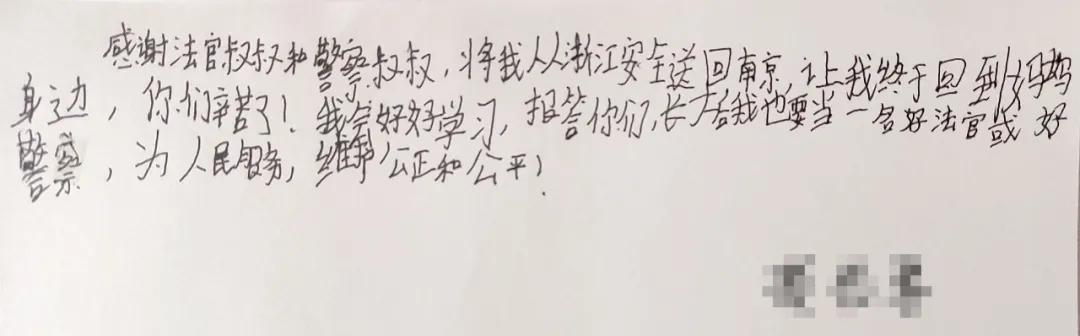 感谢法官叔叔和警察叔叔，将我从浙江安全送回南京，让我终于回到妈妈
身边，你们辛苦了！我会好好学习，报答你们，长大后我也要当一名好法官或好
警察，为人民服务，维护公正和公平！